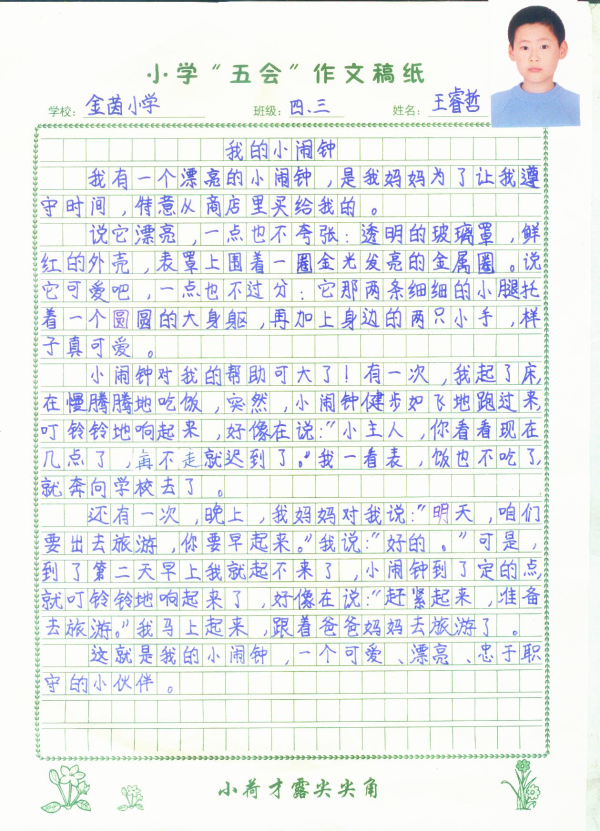 小学“五会”作文稿纸
学校: 金茵小学 班级: 四、三 姓名: 王睿哲
我的小闹钟
我有一个漂亮的小闹钟，是我妈妈为了让我遵
守时间，特意从商店里买给我的。
说它漂亮，一点也不夸张：透明的玻璃罩，鲜
红的外壳，表罩上围着一圈金光发亮的金属圈。说
它可爱吧，一点也不过分：它那两条细细的小腿托
着一个圆圆的大身躯，再加上身边的两只小手，样
子真可爱。
小闹钟对我的帮助可大了！有一次，我起了床，
在慢腾腾地吃饭，突然，小闹钟健步如飞地跑过来，
叮铃铃地响起来，好像在说：“小主人，你看看现在
几点了，再不走就迟到了。”我一看表，饭也不吃了，
就奔向学校去了。
还有一次，晚上，我妈妈对我说：“明天，咱们
要出去旅游，你要早起来。”我说：“好的。”可是，
到了第二天早上我就起不来了，小闹钟到了定的点，
就叮铃铃地响起来了，好像在说：“赶紧起来，准备
去旅游。”我马上起来，跟着爸爸妈妈去旅游了。
这就是我的小闹钟，一个可爱、漂亮、忠于职
守的小伙伴。
小荷才露尖尖角